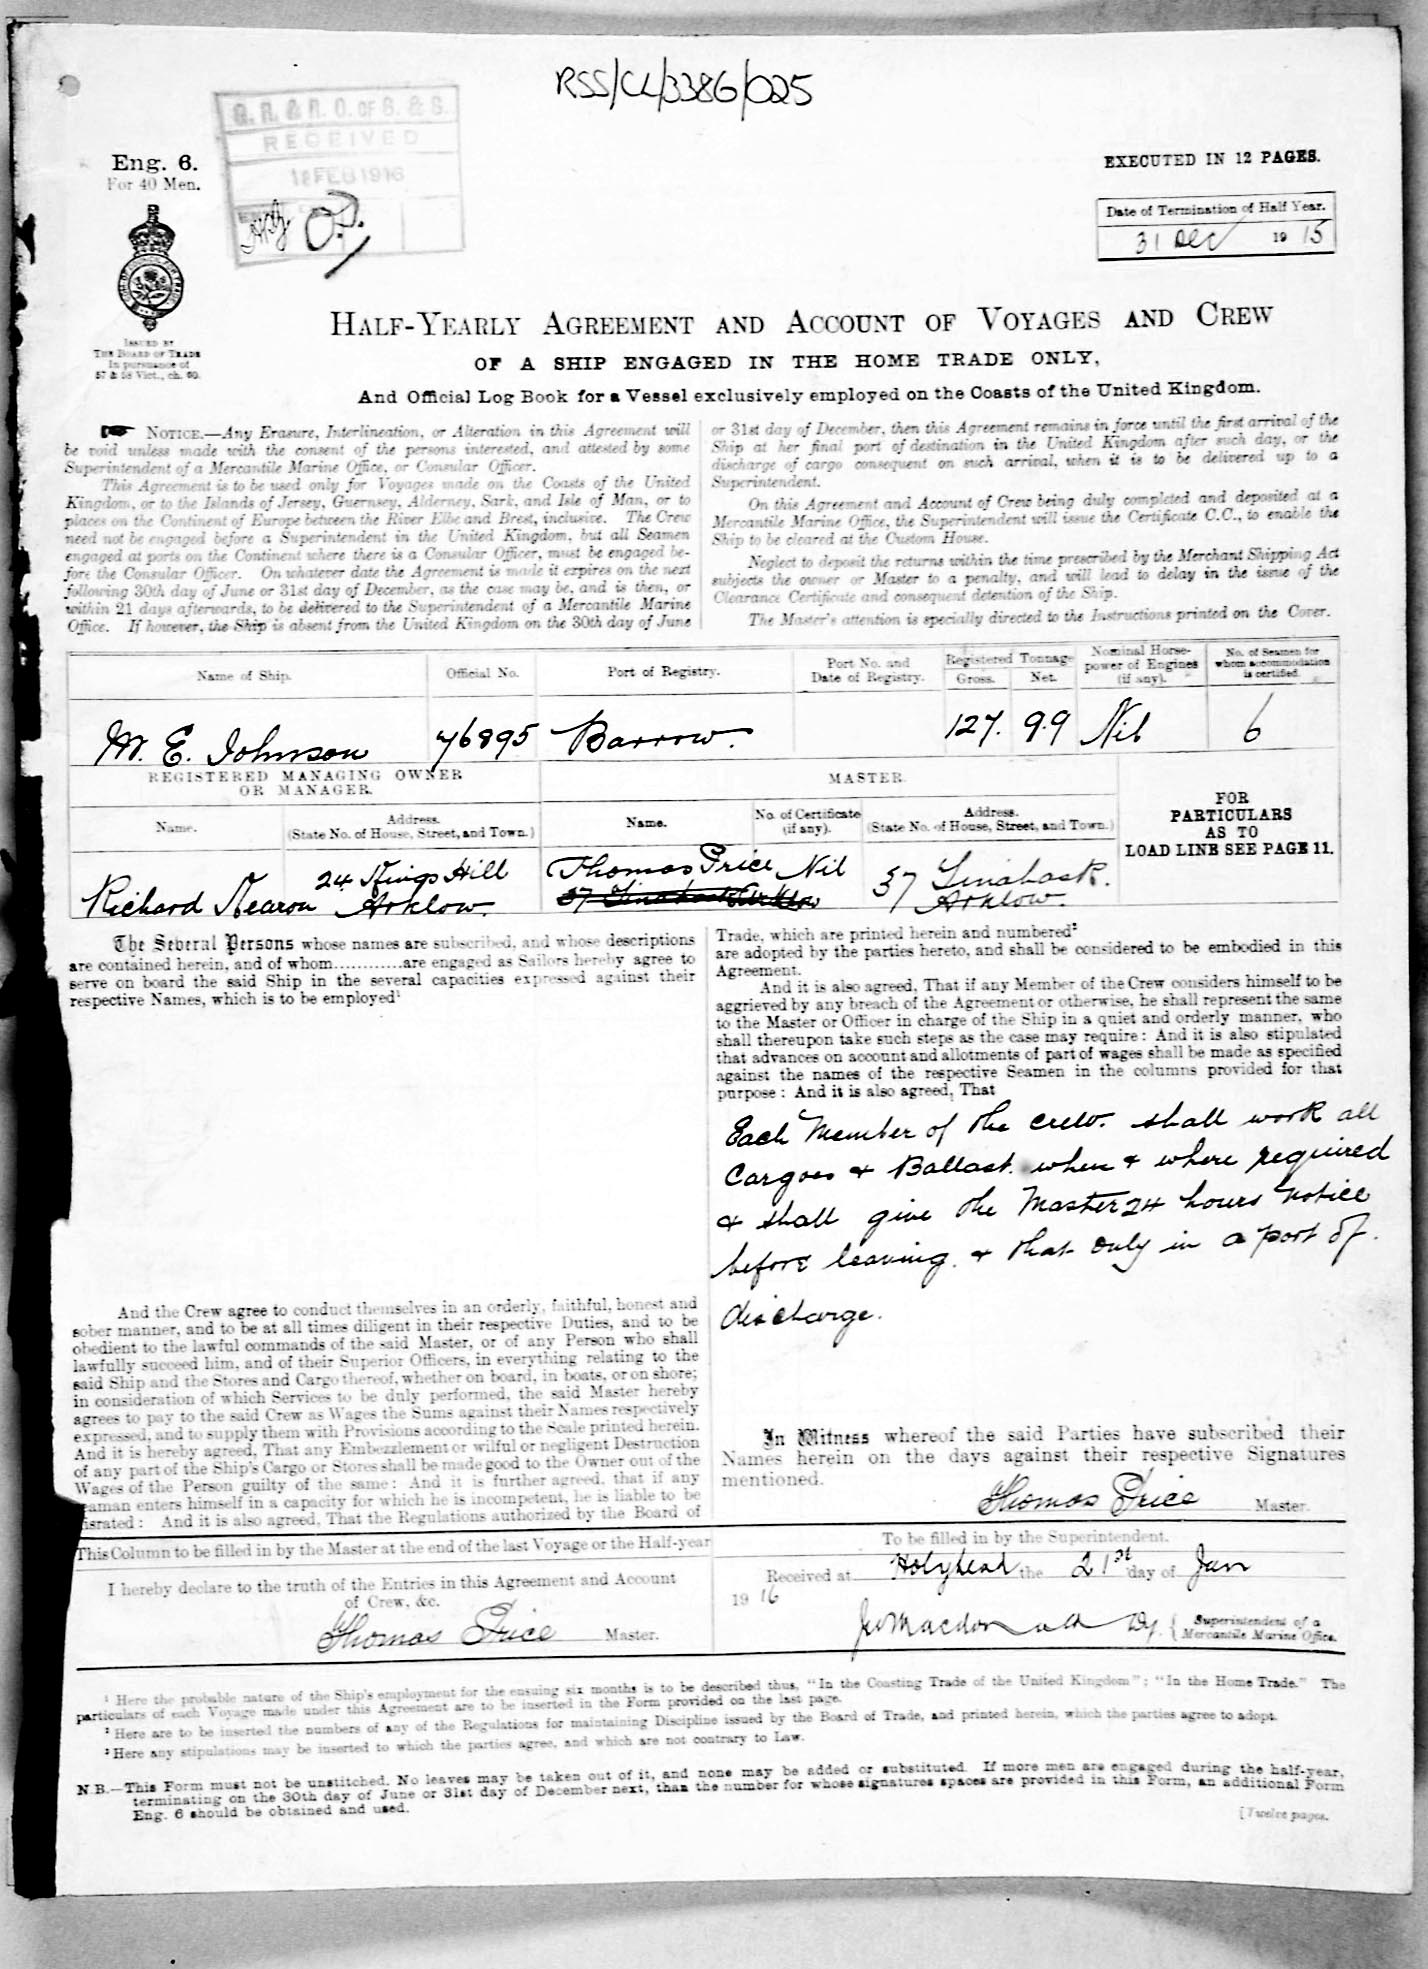 RSS/CL/3386/025
G. R. & R. O. OF S. & S.
RECEIVED
FEB 1916
Eng. 6.
For 40 Men.
EXECUTED IN 12 PAGES.
Date of Termination of Half Year.
31 Dec 1915
ISSUED BY
THE BOARD OF TRADE
In pursuance of
57 & 58 Vict., ch. 60.
HALF-YEARLY AGREEMENT AND ACCOUNT OF VOYAGES AND CREW
OF A SHIP ENGAGED IN THE HOME TRADE ONLY,
And Official Log Book for a Vessel exclusively employed on the Coasts of the United Kingdom.
NOTICE.—Any Erasure, Interlineation, or Alteration in this Agreement will
be void unless made with the consent of the persons interested, and attested by some
Superintendent of a Mercantile Marine Office, or Consular Officer.
This Agreement is to be used only for Voyages made on the Coasts of the United
Kingdom, or to the Islands of Jersey, Guernsey, Alderney, Sark, and Isle of Man, or to
places on the Continent of Europe between the River Elbe and Brest, inclusive. The Crew
need not be engaged before a Superintendent in the United Kingdom, but all Seamen
engaged at ports on the Continent where there is a Consular Officer, must be engaged be-
fore the Consular Officer. On whatever date the Agreement is made it expires on the next
following 30th day of June or 31st day of December, as the case may be, and is then, or
within 21 days afterwards, to be delivered to the Superintendent of a Mercantile Marine
Office. If however, the Ship is absent from the United Kingdom on the 30th day of June
or 31st day of December, then this Agreement remains in force until the first arrival of the
Ship at her final port of destination in the United Kingdom after such day, or the
discharge of cargo consequent on such arrival, when it is to be delivered up to a
Superintendent.
On this Agreement and Account of Crew being duly completed and deposited at a
Mercantile Marine Office, the Superintendent will issue the Certificate C.C., to enable the
Ship to be cleared at the Custom House.
Neglect to deposit the returns within the time prescribed by the Merchant Shipping Act
subjects the owner or Master to a penalty, and will lead to delay in the issue of the
Clearance Certificate and consequent detention of the Ship.
The Master's attention is specially directed to the Instructions printed on the Cover.
Name of Ship. Official No. Port of Registry. Port No. and Date of Registry. Registered Tonnage Gross. Net. Nominal Horse-power of Engines (if any). No. of Seamen for whom accommodation is certified.
M. E. Johnson 76895 Barrow. 127. 99 Nil 6
REGISTERED MANAGING OWNER
OR MANAGER.
MASTER.
Name. Address. (State No. of House, Street, and Town.) Name. No. of Certificate (if any). Address. (State No. of House, Street, and Town.)
FOR
PARTICULARS
AS TO
LOAD LINE SEE PAGE 11.
Richard Kearon 24 Kings Hill Arklow. Thomas Price Nil 37 Tinahask. Arklow.
The Several Persons whose names are subscribed, and whose descriptions
are contained herein, and of whom............are engaged as Sailors hereby agree to
serve on board the said Ship in the several capacities expressed against their
respective Names, which is to be employed¹
And the Crew agree to conduct themselves in an orderly, faithful, honest and
sober manner, and to be at all times diligent in their respective Duties, and to be
obedient to the lawful commands of the said Master, or of any Person who shall
lawfully succeed him, and of their Superior Officers, in everything relating to the
said Ship and the Stores and Cargo thereof, whether on board, in boats, or on shore;
in consideration of which Services to be duly performed, the said Master hereby
agrees to pay to the said Crew as Wages the Sums against their Names respectively
expressed, and to supply them with Provisions according to the Scale printed herein.
And it is hereby agreed, That any Embezzlement or wilful or negligent Destruction
of any part of the Ship's Cargo or Stores shall be made good to the Owner out of the
Wages of the Person guilty of the same: And it is further agreed, that if any
eaman enters himself in a capacity for which he is incompetent, he is liable to be
israted: And it is also agreed, That the Regulations authorized by the Board of
Trade, which are printed herein and numbered²
are adopted by the parties hereto, and shall be considered to be embodied in this
Agreement.
And it is also agreed, That if any Member of the Crew considers himself to be
aggrieved by any breach of the Agreement or otherwise, he shall represent the same
to the Master or Officer in charge of the Ship in a quiet and orderly manner, who
shall thereupon take such steps as the case may require: And it is also stipulated
that advances on account and allotments of part of wages shall be made as specified
against the names of the respective Seamen in the columns provided for that
purpose: And it is also agreed, That
Each Member of the crew. shall work all
Cargoes & Ballast. when & where required
& shall give the Master 24 hours notice
before leaving. & that only in a port of.
discharge.
In Witness whereof the said Parties have subscribed their
Names herein on the days against their respective Signatures
mentioned.
Thomas Price Master.
This Column to be filled in by the Master at the end of the last Voyage or the Half-year
I hereby declare to the truth of the Entries in this Agreement and Account
of Crew, &c.
Thomas Price Master.
To be filled in by the Superintendent.
Received at Holyhead the 21st day of Jan
1916
Macdonald Dy. { Superintendent of a Mercantile Marine Office.
¹ Here the probable nature of the Ship's employment for the ensuing six months is to be described thus, "In the Coasting Trade of the United Kingdom"; "In the Home Trade." The
particulars of each Voyage made under this Agreement are to be inserted in the Form provided on the last page.
² Here are to be inserted the numbers of any of the Regulations for maintaining Discipline issued by the Board of Trade, and printed herein, which the parties agree to adopt.
³ Here any stipulations may be inserted to which the parties agree, and which are not contrary to Law.
N.B.—This Form must not be unstitched. No leaves may be taken out of it, and none may be added or substituted. If more men are engaged during the half-year,
terminating on the 30th day of June or 31st day of December next, than the number for whose signatures spaces are provided in this Form, an additional Form
Eng. 6 should be obtained and used.
[Twelve pages.